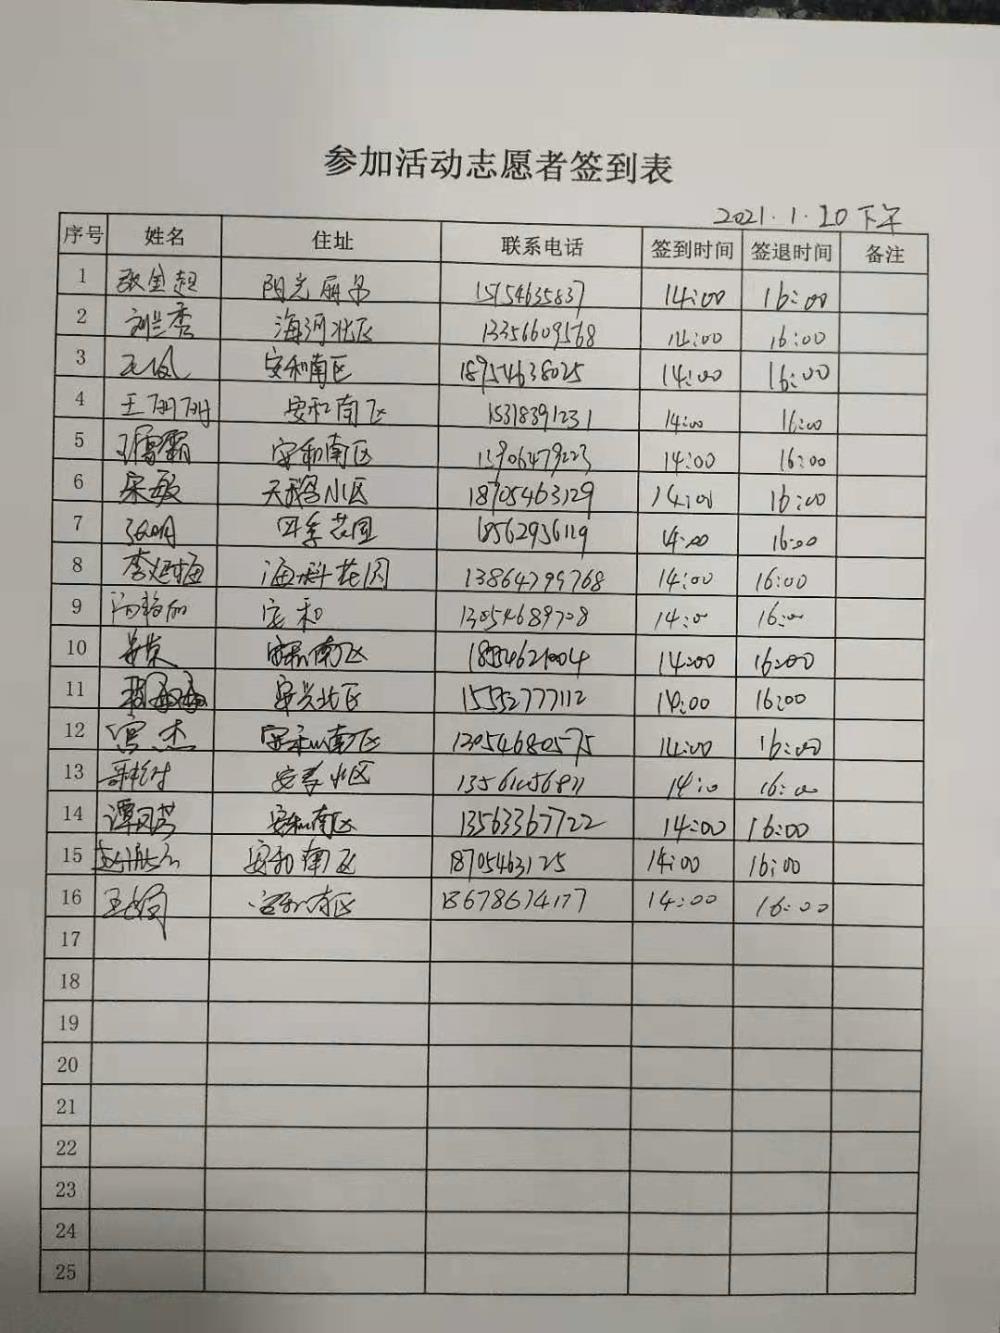 参加活动志愿者签到表
2021.1.20下午
序号 姓名 住址 联系电话 签到时间 签退时间 备注
1 张金超 阳光丽 15154635837 14:00 16:00
2 刘兰秀 海河北区 13356609568 14:00 16:00
3 安和南区 18954638025 14:00 16:00
4 王丽丽 安和南区 15318391231 14:00 16:00
5 安和南区 13906479223 14:00 16:00
6 宋敏 天鹅小区 18705463129 14:00 16:00
7 张明 四季花园 18562936119 14:00 16:00
8 李延梅 海科花园 13864799768 14:00 16:00
9 安和 13054689708 14:00 16:00
10 安和南区 14:00 16:00
11 安兴北区 15552777112 14:00 16:00
12 宫杰 安和南区 13054680575 14:00 16:00
13 北区 14:00 16:00
14 谭凤芳 安和南区 13563367722 14:00 16:00
15 安和南区 18705463125 14:00 16:00
16 安和南区 14:00 16:00
17
18
19
20
21
22
23
24
25